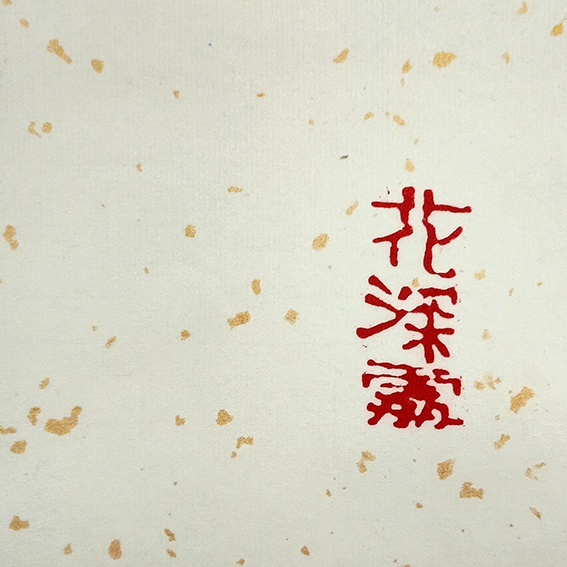 花深處